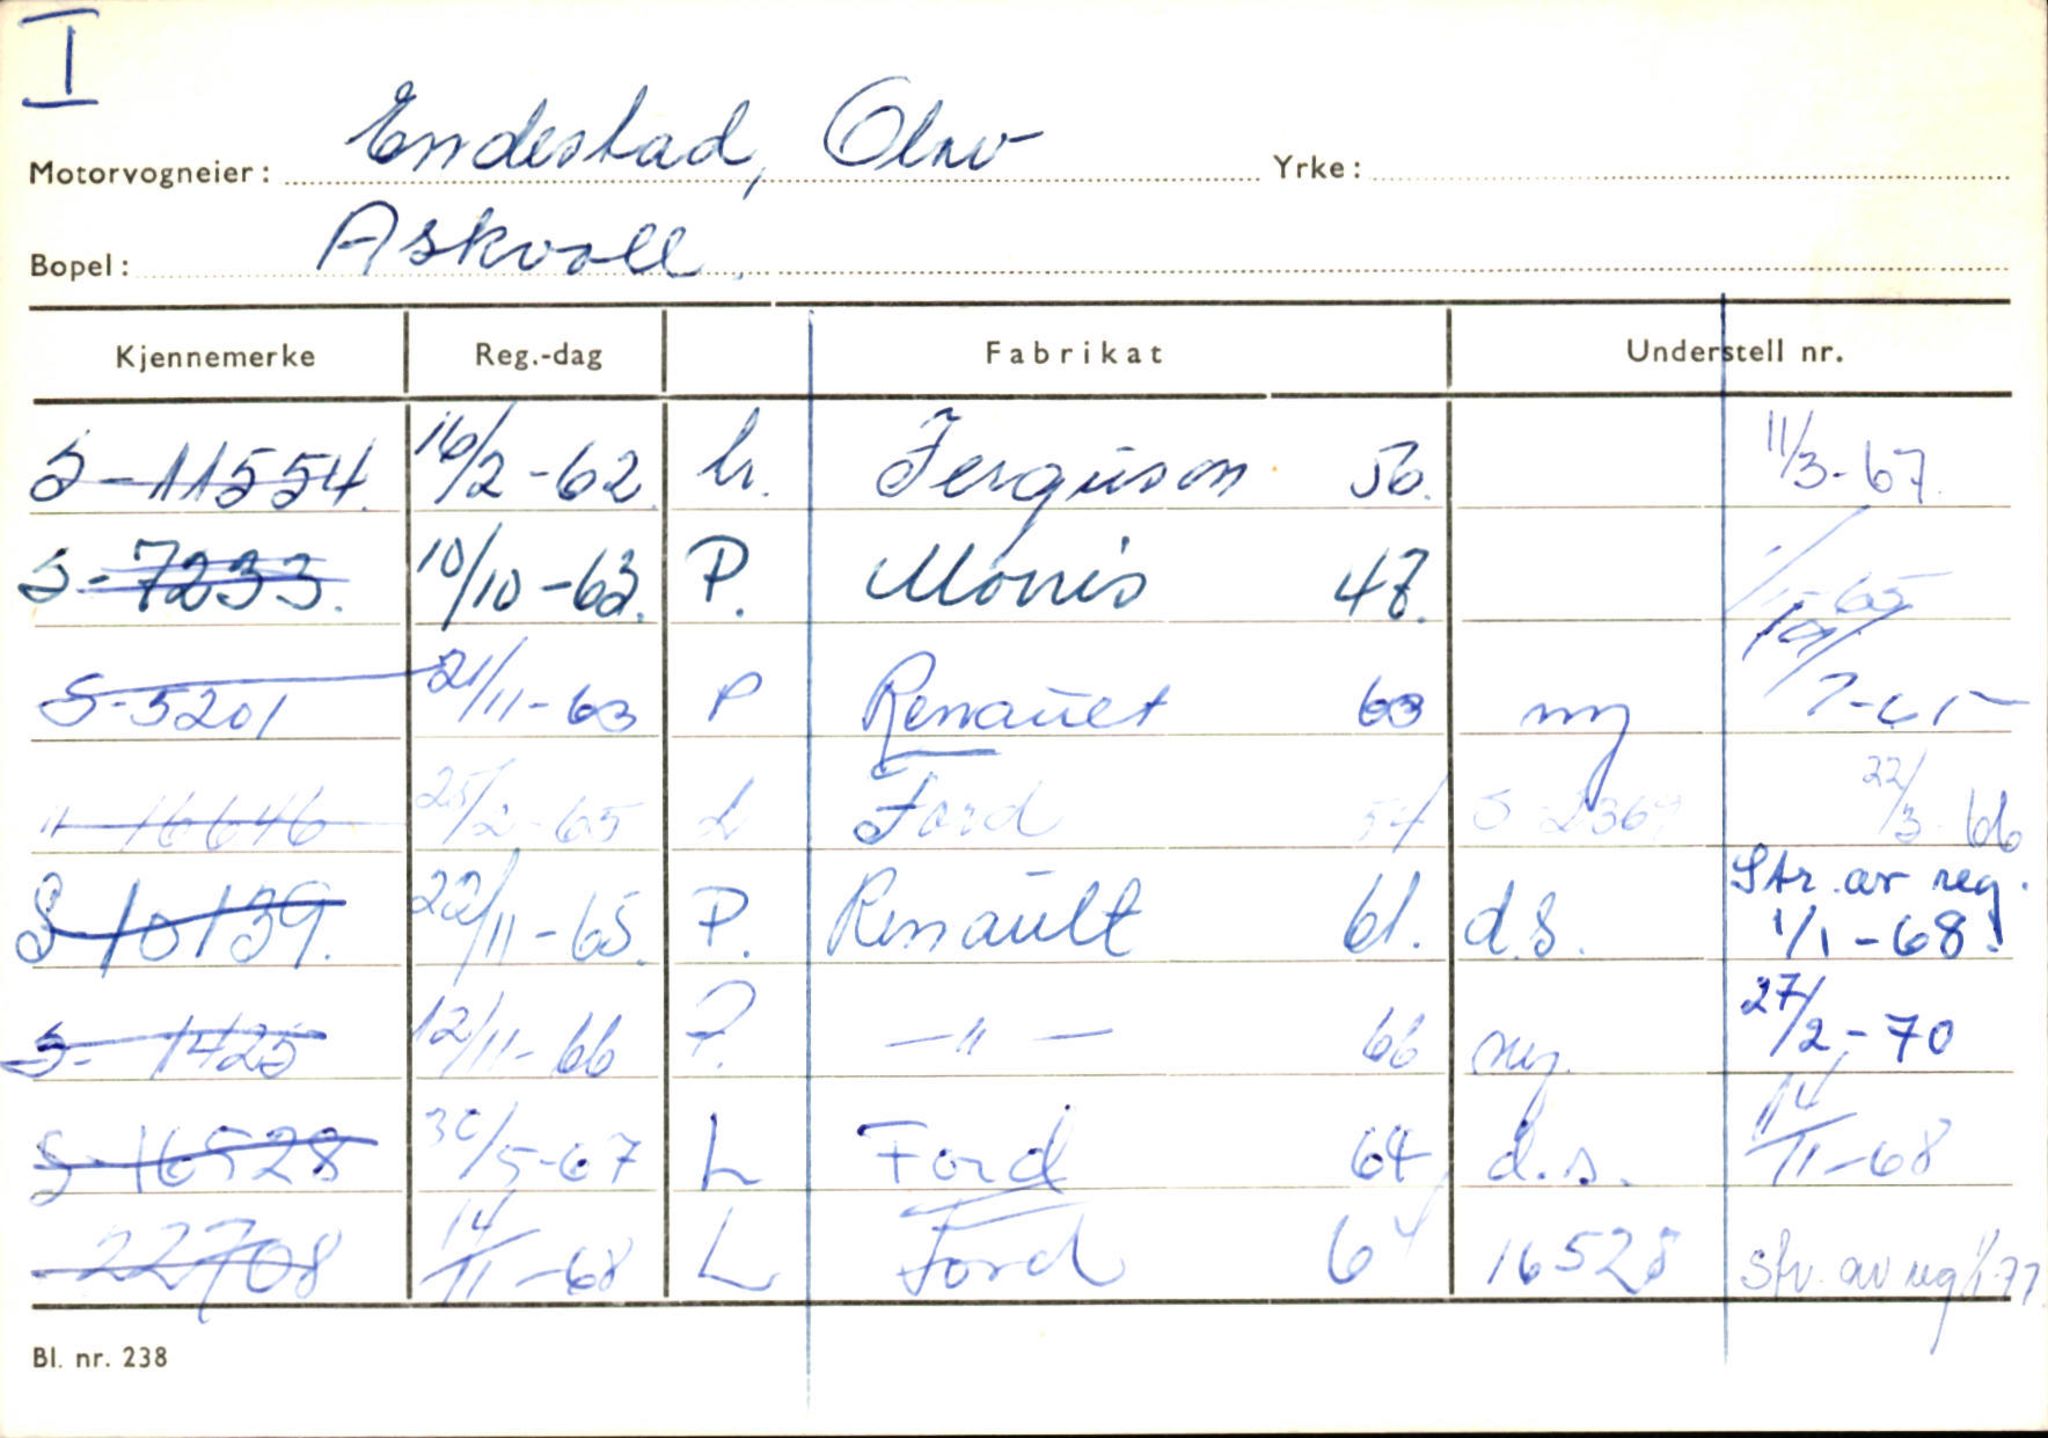 I
Motorvogneier: Endestad, Olav Yrke:
Bopel: Askvoll
Kjennemerke Reg.-dag Fabrikat Understell nr.
S-11554. 16/2-62. Ferguson 56. 11/3-67.
S-7233. 10/10-63. P. Morris 47.
S-5201 21/11-63 P Renault 63 ny
" 16646 25/2-65 L Ford 54 S 2369 22/3-66
S-10139. 22/11-65. P. Renault 61. d.s. Str. av reg. 1/1-68.
S-1425 12/11-66 P. -"- 66 ny. 27/2-70
S-16528 30/5-67 L Ford 64 d.s. 14/11-68
-22708 14/11-68 L Ford 64 16528 Str. av reg 1/1-77.
Bl. nr. 238